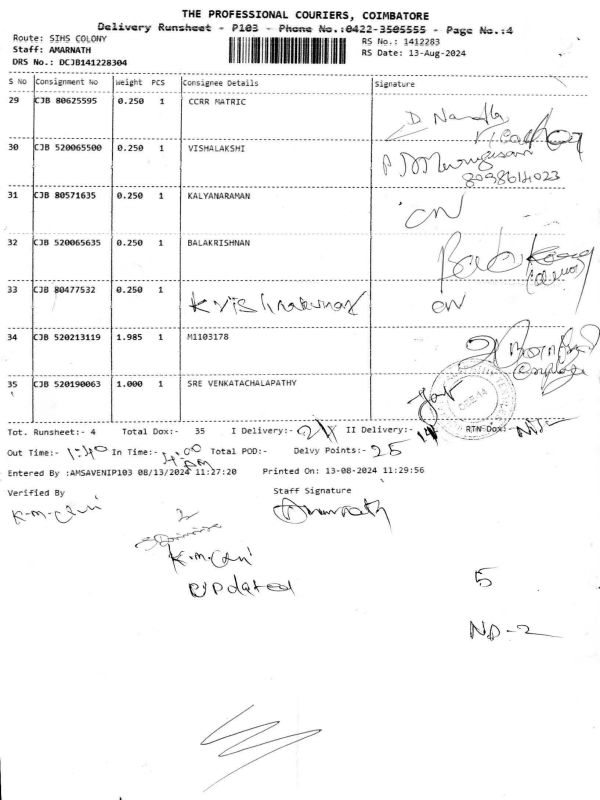 THE PROFESSIONAL COURIERS, COIMBATORE
Delivery Runsheet - P103 - Phone No.:0422-3505555 - Page No.:4
Route: SIHS COLONY
RS No.: 1412283
Staff: AMARNATH
RS Date: 13-Aug-2024
DRS No.: DCJB141228304
S No Consignment No Weight PCS Consignee Details Signature
29 CJB 80625595 0.250 1 CCRR MATRIC
30 CJB 520065500 0.250 1 VISHALAKSHI
8098614023
31 CJB 80571635 0.250 1 KALYANARAMAN CN
32 CJB 520065635 0.250 1 BALAKRISHNAN
33 CJB 80477532 0.250 1 CN
34 CJB 520213119 1.985 1 M1103178
35 CJB 520190063 1.000 1 SRE VENKATACHALAPATHY
Tot. Runsheet:- 4 Total Dox:- 35 I Delivery:- II Delivery:- RTN Dox:-
Out Time:- 1:40 In Time:- 4:00 PM Total POD:- Delvy Points:- 25
Entered By :AMSAVENIP103 08/13/2024 11:27:20 Printed On: 13-08-2024 11:29:56
Verified By Staff Signature
Amarnath
Updated
5
ND-2